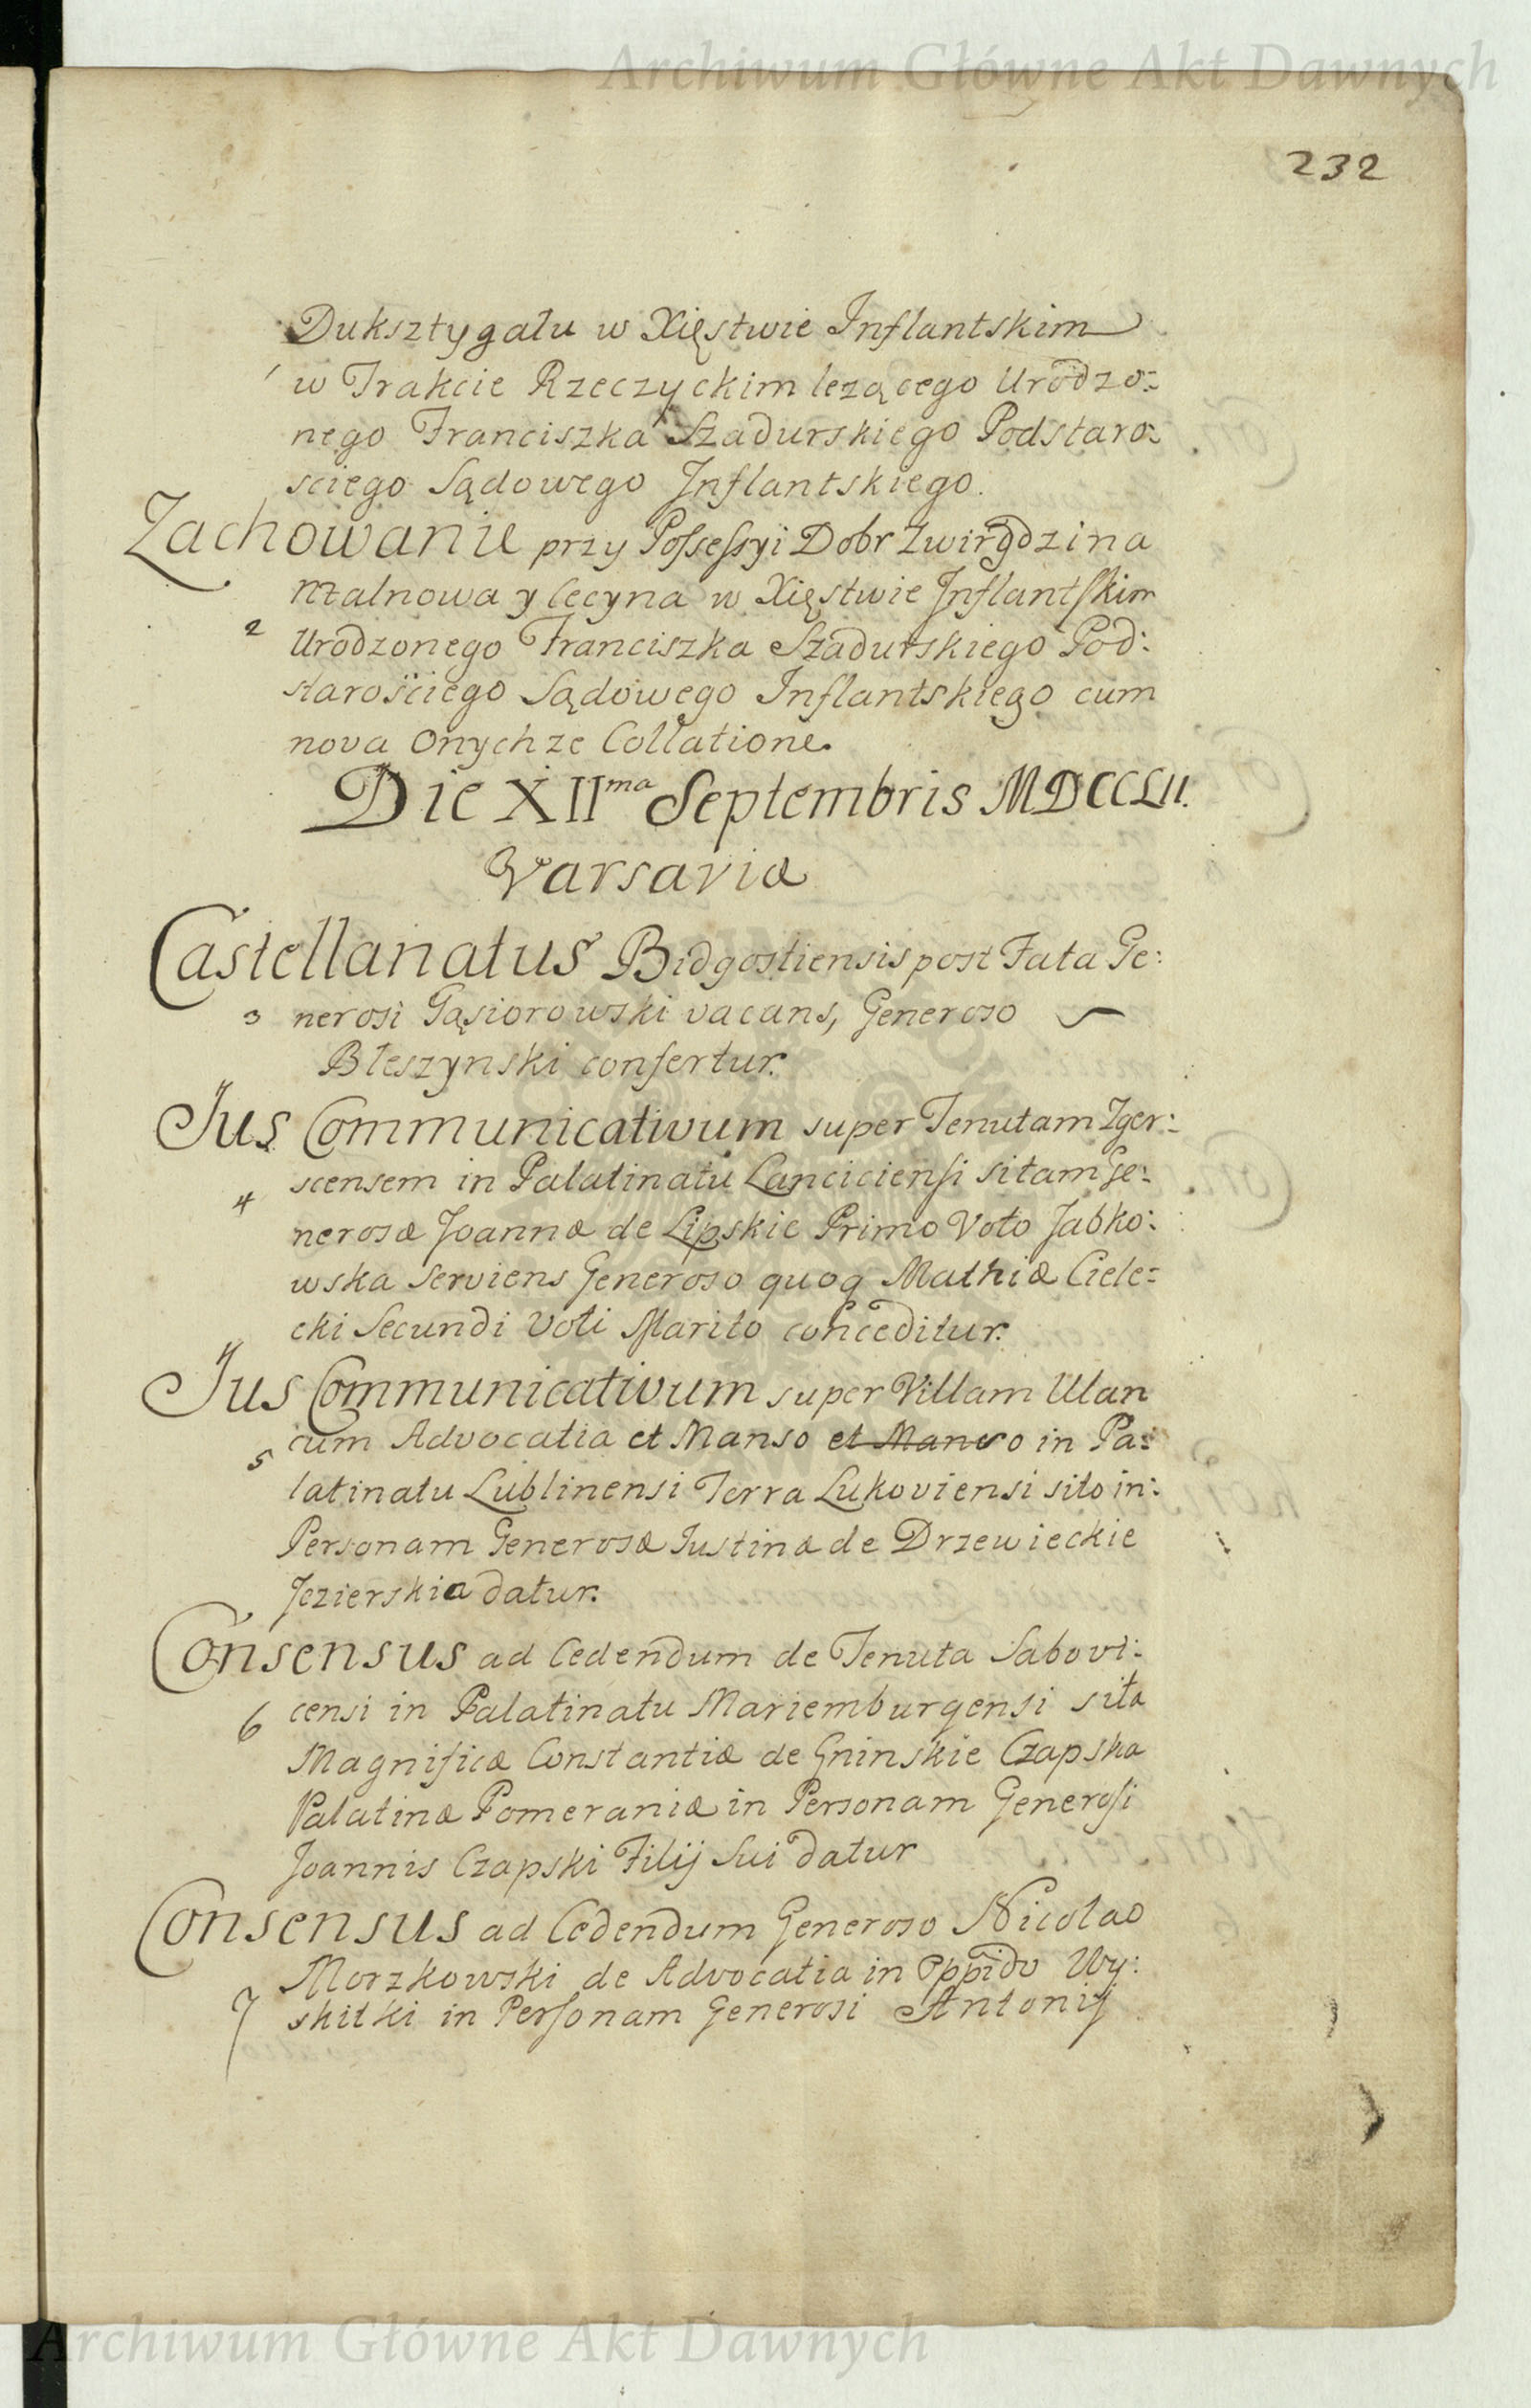 Archiwum Główne Akt Dawnych
232
Duksztygału w Xięstwie Inflantskim
1 w Trakcie Rzeczyckim lezącego Urodzo:
nego Franciszka Szadurskiego Podstaro:
sciego Sądowego Inflantskiego.
Zachowanie przy Possessyi Dobr Zwirgdzina
Malnowa y Lecyna w Xięstwie Inflantskim
2 Urodzonego Franciszka Szadurskiego Pod:
starościego Sądowego Inflantskiego cum
nova Onychze Collatione.
Die XIIma Septembris MDCCLII.
Varsaviæ
Castellanatus Bidgostiensis post Fata Ge:
3 nerosi Gąsiorowski vacans, Generoso
Błeszynski confertur.
Jus Communicativum super Tenutam Zger:
scensem in Palatinatu Lanciciensi sitam Ge:
4 nerosæ Joannæ de Lipskie Primo Voto Jabko:
wska Serviens Generoso quoq Mathiæ Ciele:
cki Secundi Voti Marito conceditur.
Jus Communicativum super Villam Ulan
5 cum Advocatia et Manso et Manso in Pa:
latinatu Lublinensi Terra Lukoviensi sito in:
Personam Generosæ Justinæ de Drzewieckie
Jezierskia datur.
Consensus ad Cedendum de Tenuta Sabovi:
6 censi in Palatinatu Mariemburgensi sita
Magnificæ Constantiæ de Gninskie Czapska
Palatinæ Pomeraniæ in Personam Generosi
Joannis Czapski Filij Sui datur
Consensus ad Cedendum Generoso Nicolao
Morzkowski de Advocatia in Oppido Wy:
7 skitki in Personam Generosi Antonij
Archiwum Główne Akt Dawnych